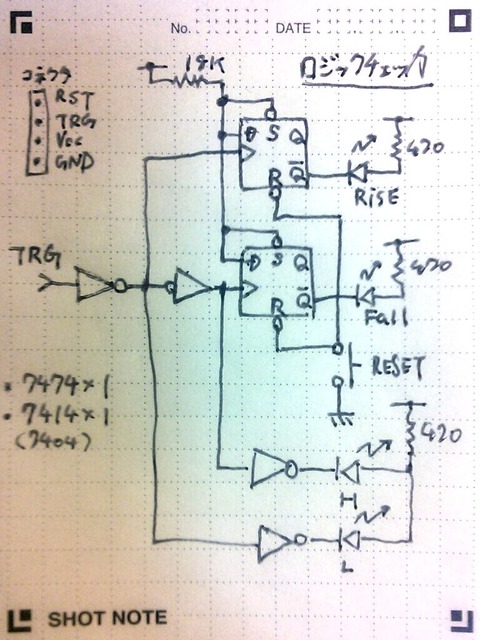 No. DATE
ロジックチェッカ
コネクタ
RST
TRG
Vcc
GND
D S Q
Q
R
420
Rise
TRG
D S Q
Q
R
420
Fall
RESET
• 7474×1
• 7414×1
(7404)
420
H
L
SHOT NOTE